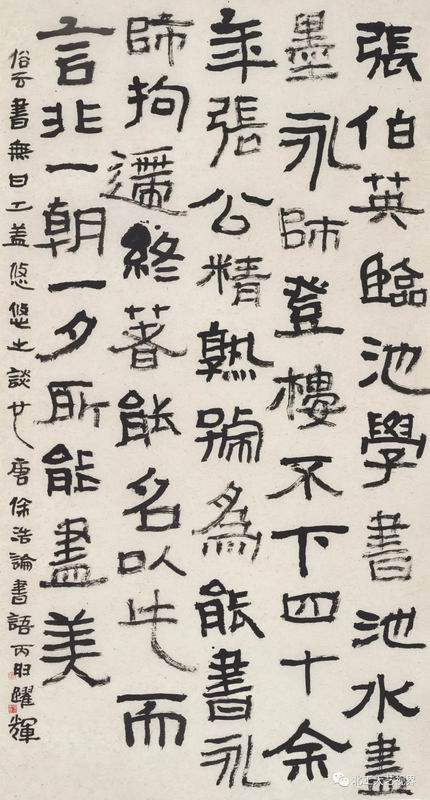 張伯英臨池學書池水盡
墨永師登樓不下四十余
年張公精熟號為能書永
師拘邇終著能名以此而
言非一朝一夕所能盡美
俗云書無日工盖悠悠之談也唐徐浩論書語丙申躍輝
北工大艺视界